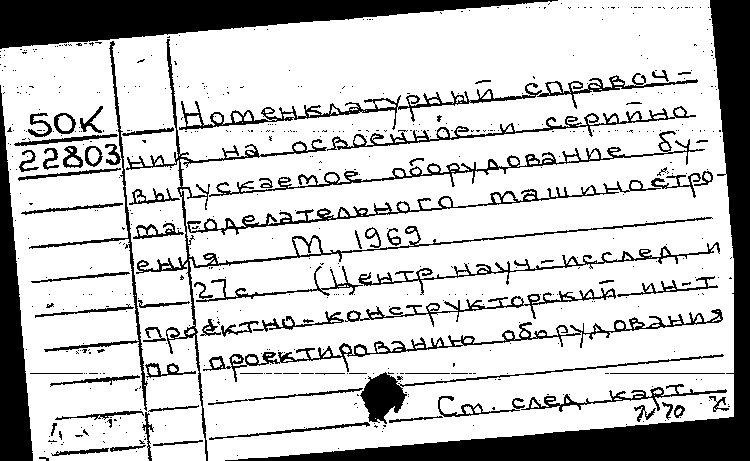 50К
22803
Номенклатурный справоч-
ник на освоенное и серийно
выпускаемое оборудование бу-
магоделательного машиностро-
ения. М., 1969.
27с. (Центр. науч.-исслед. и
проектно-конструкторский ин-т
по проектированию оборудования
См. след. карт.